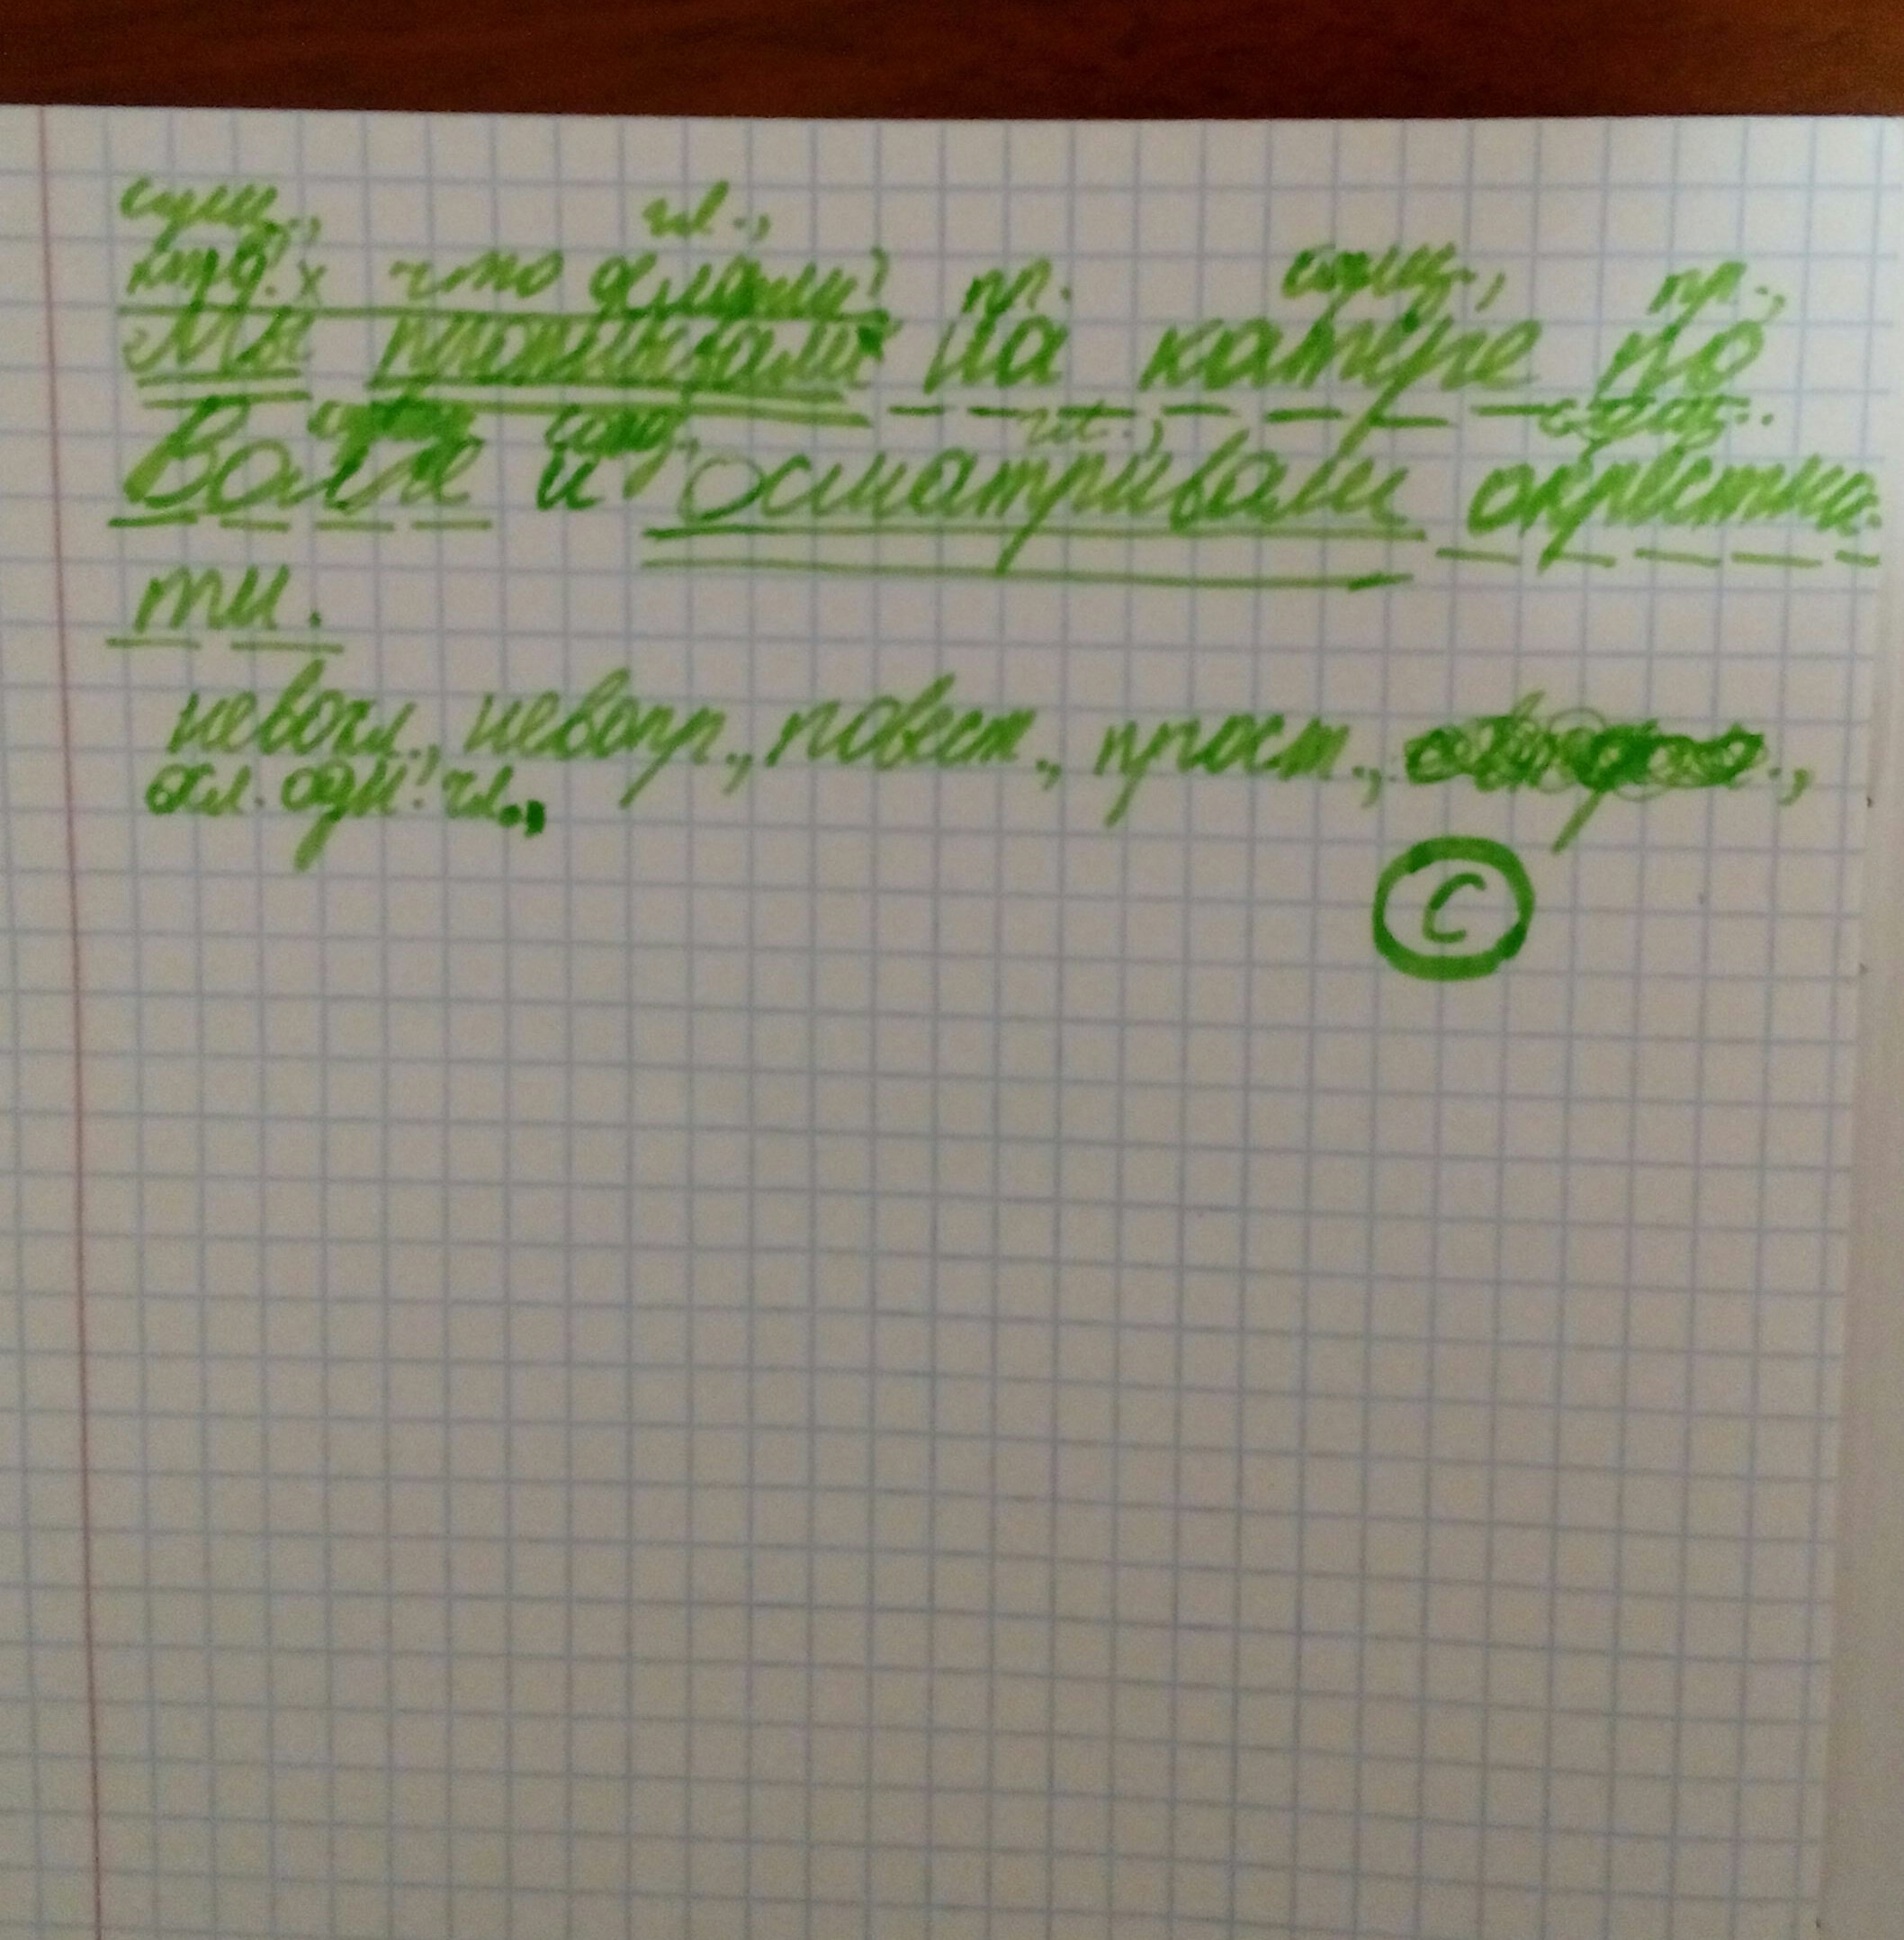 сущ., гл.,
кто? х что делали? пр. сущ., пр.,
Мы проплывали на катере по
сущ. союз. гл., сущ.
Волге и осматривали окрестно-
ти.
невоскл., невопр., повест., прост.,
осл. одн. чл.,
С